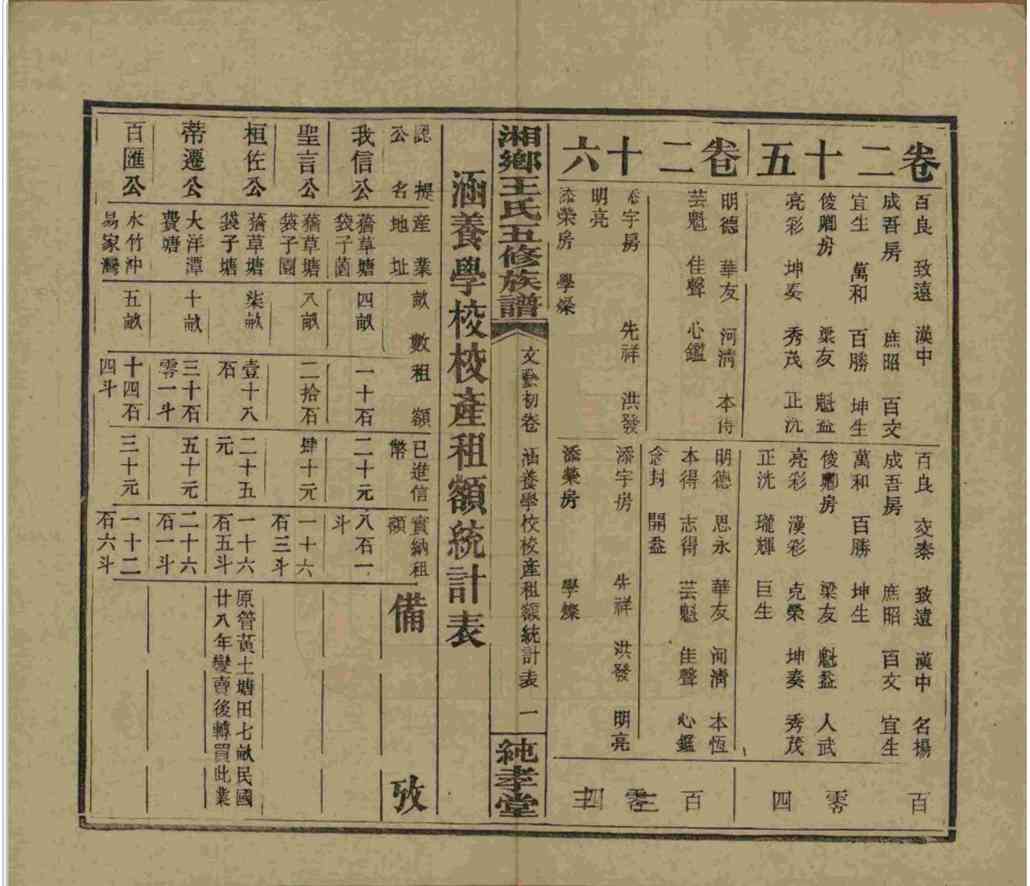 卷二十五
百良 致遠 漢中
成吾房 庶昭 百文
宜生 萬和 百勝 坤生
俊卿房 梁友 魁益
亮彩 坤奏 秀茂 正洗
百良 交泰 致遠 漢中 名場
成吾房 庶昭 百文 宜生
萬和 百勝 坤生
俊卿房 梁友 魁益 人武
亮彩 漢彩 克榮 坤奏 秀茂
正洗 瓏輝 巨生
百零四
卷二十六
明德 華友 河清 本得
芸魁 佳聲 心鑑
添字房 先祥 洪發
明亮
添榮房 學燦
明德 恩永 華友 河清 本恆
本得 志得 芸魁 佳聲 心鑑
念封 開益
添字房 先祥 洪發 明亮
添榮房 學燦
百零
湘鄉王氏五修族譜
文藝初卷 涵養學校校產租額統計表 一
純孝堂
涵養學校校產租額統計表
認提公名
產業地址
畝數
租額
已進信幣
實納租額
備攷
我信公
蓿草塘袋子菌
四畝
一十石
二十元
八石一斗
聖言公
蓿草塘袋子園
八畝
二拾石
肆十元
一十六石三斗
桓佐公
蓿草塘袋子塘
柒畝
壹十八石
二十五元
一十六石五斗
原管黃土塘田七畝民國廿八年變賣後轉買此業
蒂遷公
大洋潭費塘
十畝
三十石零一斗
五十元
二十六石一斗
百匯公
水竹沖易家灣
五畝
十四石四斗
三十元
一十二石六斗